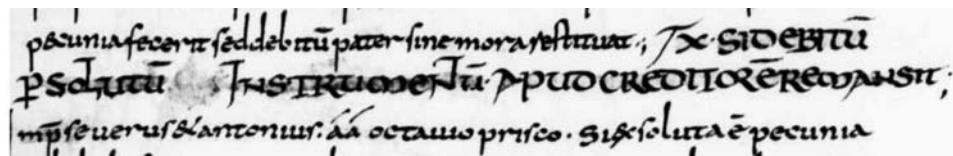 pecunia fecerit sed debitū pater sine mora restituat ; IX · SI DEBITŪ
ꝑSOLUTŪ INSTRUMENTŪ · APUD CREDITORĒ REMANSIT ;
Imp̄ seuerus & antonius · áá octauio prisco · Si exsoluta ē pecunia